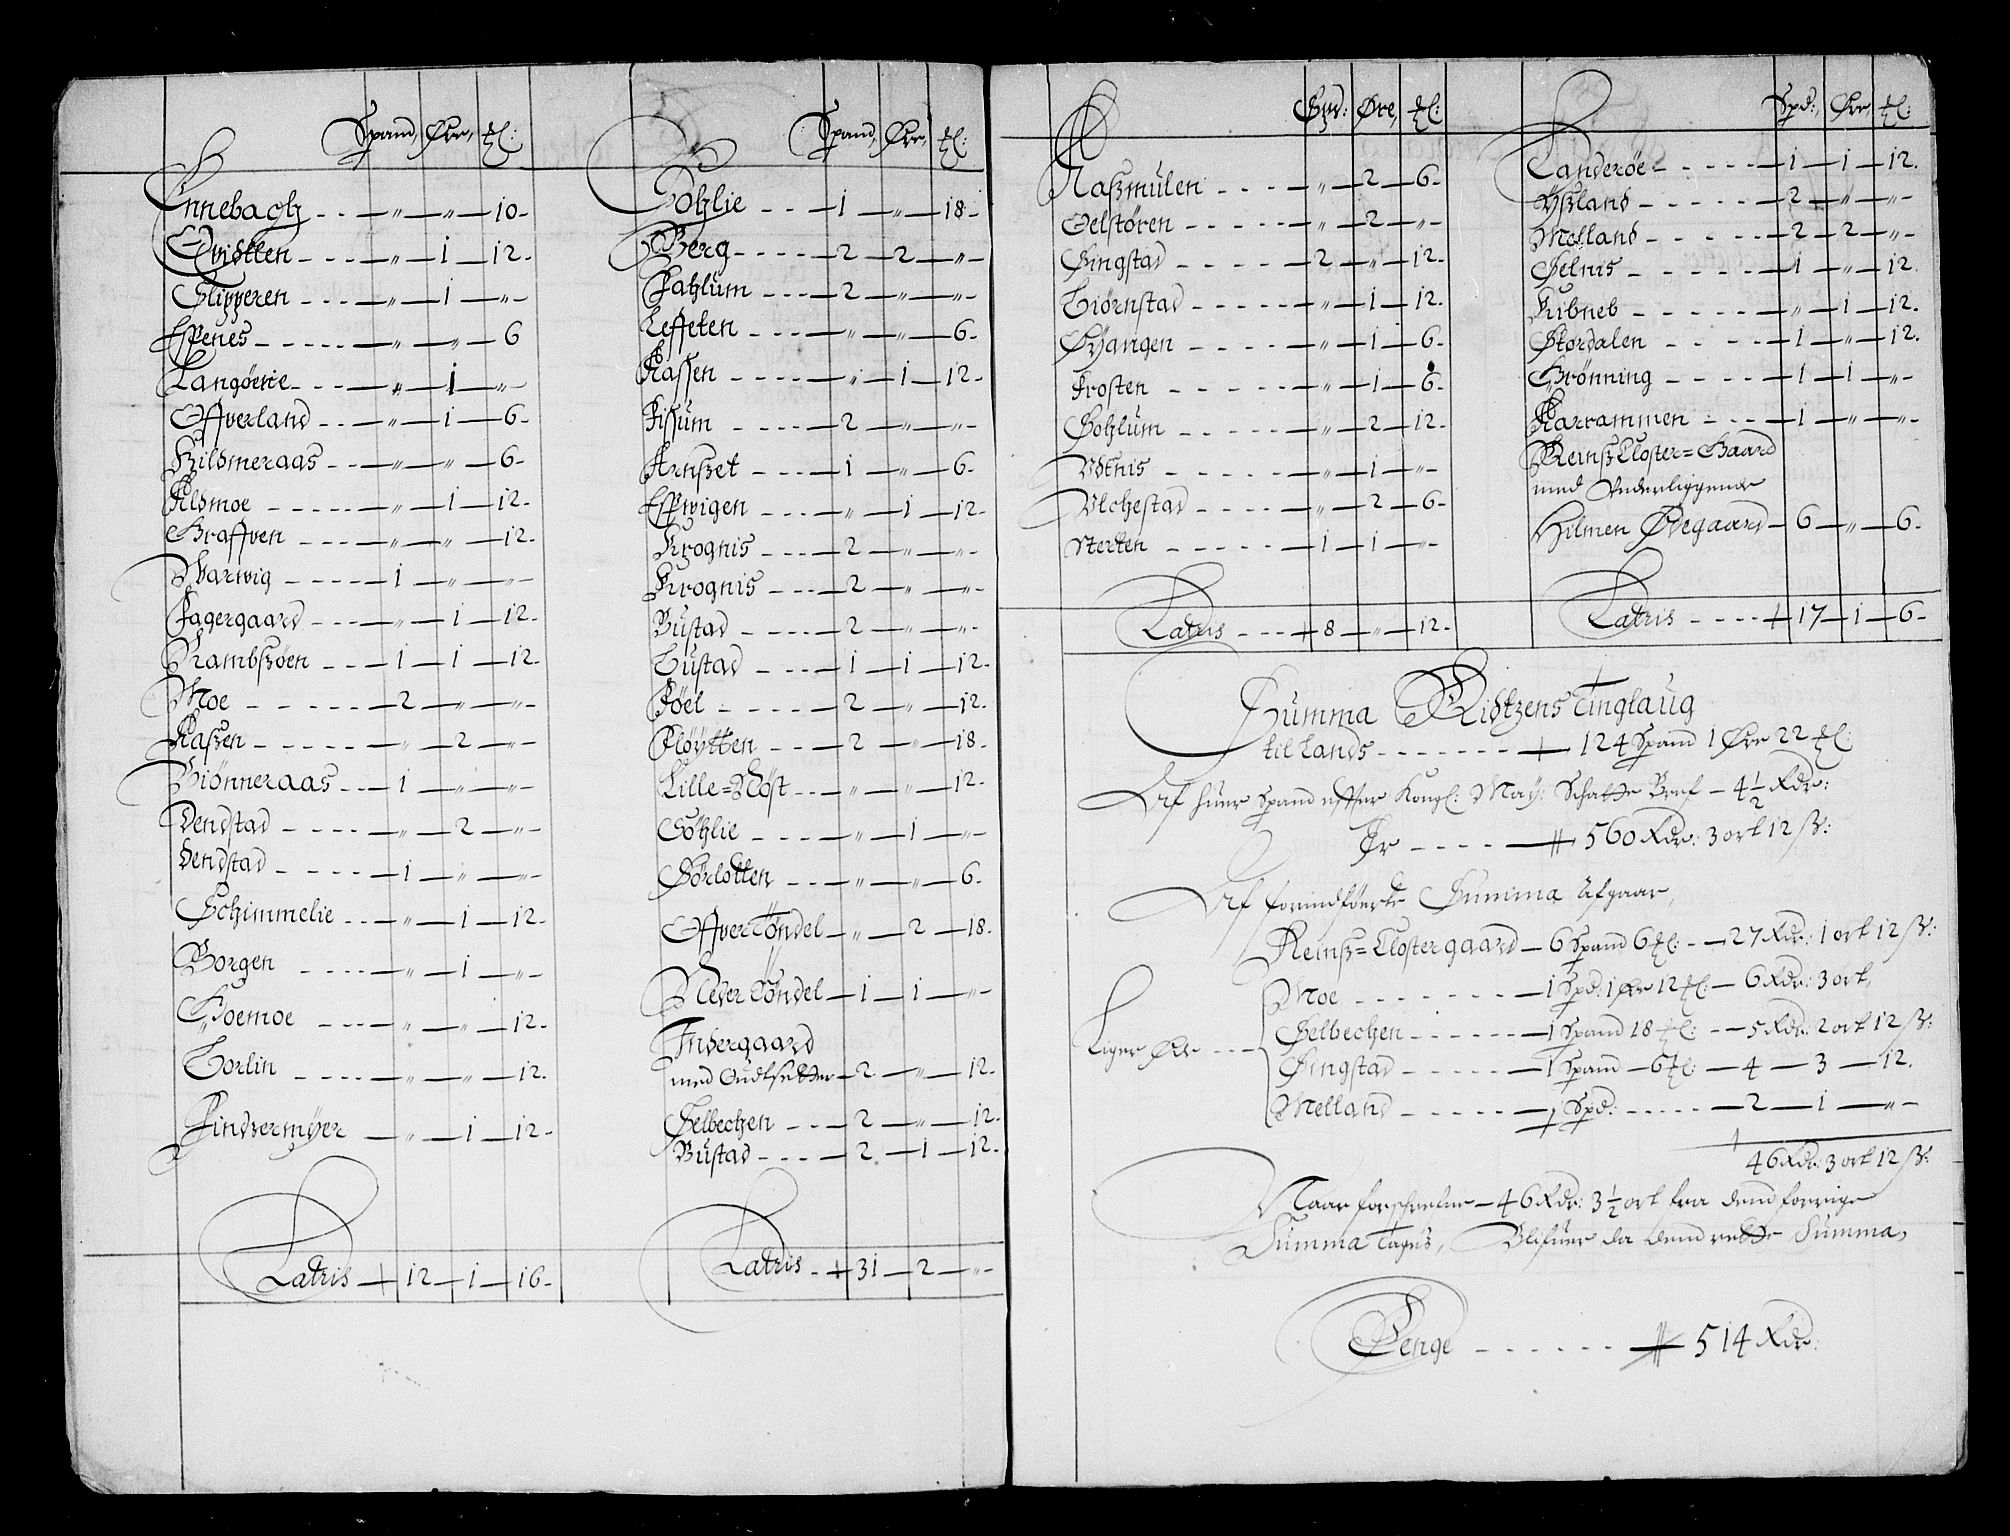 Spand, Øre, ℔:
Ennebach - - - " - " - 10 -
Qvidtten - - - " - 1 - 12 -
Slipperen - - - " - 1 - " -
Espenes - - - " - " - 6
Langøerie - - - " - 1 - " -
Offverland - - - " - 1 - 6 -
Hildmeraas - - - " - " - 6 -
Aldmoe - - - " - 1 - 12 -
Graffven - - - " - " - 12 -
Warwig - - - 1 - " - " -
Fagergaard - - - " - 1 - 12 -
Rambsøen - - - 1 - 1 - 12 -
Moe - - - 2 - " - " -
Raßen - - - " - 2 - " -
Biønneraas - - - 1 - " - " -
Vendstad - - - " - 2 - " -
Vendstad - - - 1 - " - " -
Schimmelie - - - " - 1 - 12 -
Borgen - - - " - 1 - " -
Goemoe - - - " - " - 12 -
Torlin - - - " - " - 12 -
Findsermyer - " - 1 - 12 -
Latris - 12 - 1 - 16 -
Spand, Øre, ℔:
Sohlie - - - 1 - " - 18 -
Berg - - - 2 - 2 - " -
Fahlum - - - 2 - " - " -
Leffeten - - - " - " - 6 -
Aassen - - - " - 1 - 12 -
Fissum - - - 2 - " - " -
Arnßet - - - 1 - " - 6 -
Espwigen - - - " - 1 - 12 -
Krognis - - - 2 - " - " -
Krognis - - - 2 - " - " -
Bustad - - - 2 - " - " -
Tustad - - - 1 - 1 - 12 -
Røel - - - 2 - " - 12 -
Fløytten - - - 2 - " - 18 -
Lille=Røst - - - " - " - 12 -
Søhlie - - - " - 1 - " -
Sørlotten - - - " - " - 6 -
Offver Tøndel - " - 2 - 18 -
Neder Tøndel - 1 - 1 - " -
Indergaard
med Gudtsetter - 2 - " - 12 -
Selbechen - - - 2 - " - 12 -
Bustad - - - 2 - 1 - 12 -
Latris - 31 - 2 - " -
Spd: Øre, ℔:
Naßmulen - - - " - 2 - 6 -
Oelstøren - - - " - 2 - " -
Singstad - - - 2 - " - 12 -
Tiørnstad - - - " - 1 - 12 -
Øyangen - - - " - 1 - 6 -
Frosten - - - " - 1 - 6 -
Sohlum - - - " - 2 - 12 -
Udtnis - - - " - 1 - " -
Ulchestad - - - " - 2 - 6 -
Sterten - - - 1 - 1 - " -
Latris - - - 8 - " - 12 -
Spd: Øre, ℔:
Randerøe - - - 1 - 1 - 12 -
Yßland - - - 2 - " - " -
Melland - - - 2 - 2 - " -
Selnis - - - 1 - " - 12
Kibneb - - - " - 1 - 12 -
Stordalen - - - 1 - " - 12 -
Grønning - - - 1 - 1 - " -
Karrammen - - - 1 - " - " -
Reinß Closter=Gaard
med Underliggende
Hilmen Ødegaard - 6 - " - 6 -
Latris - - - 17 - 1 - 6 -
Summa Ridtzens Tinglaug
til Lands - - - 124 Spand 1 Øre 22 ℔:
Af huer Spand effter Kongl: May: Schatte Bref - 4½ Rdr:
Er - - - 560 Rdr: 3 ort 12 ß:
Af forindførte Summa Afgaar,
Reinß=Clostergaard - 6 Spand 6 ℔: - 27 Rdr: 1 ort 12 ß:
Moe - - - 1 Spd: 1 Øre 12 ℔: - 6 Rdr: 3 ort,
Selbechen - - - 1 Spand 18 ℔: - 5 Rdr: 2 ort 12 ß:
Liger Øde - - - Singstad - - - 1 Spand - 6 ℔: - 4 - 3 - 12.
Melland - - - ½ Spd: - - - 2 - 1 - " -
46 Rdr: 3 ort 12 ß:
Naar forschrefne - 46 Rdr: 3½ ort fra dend forrige
Summa tages, Blifuer da dend rette Summa,
Penge - - - 514 Rdr: